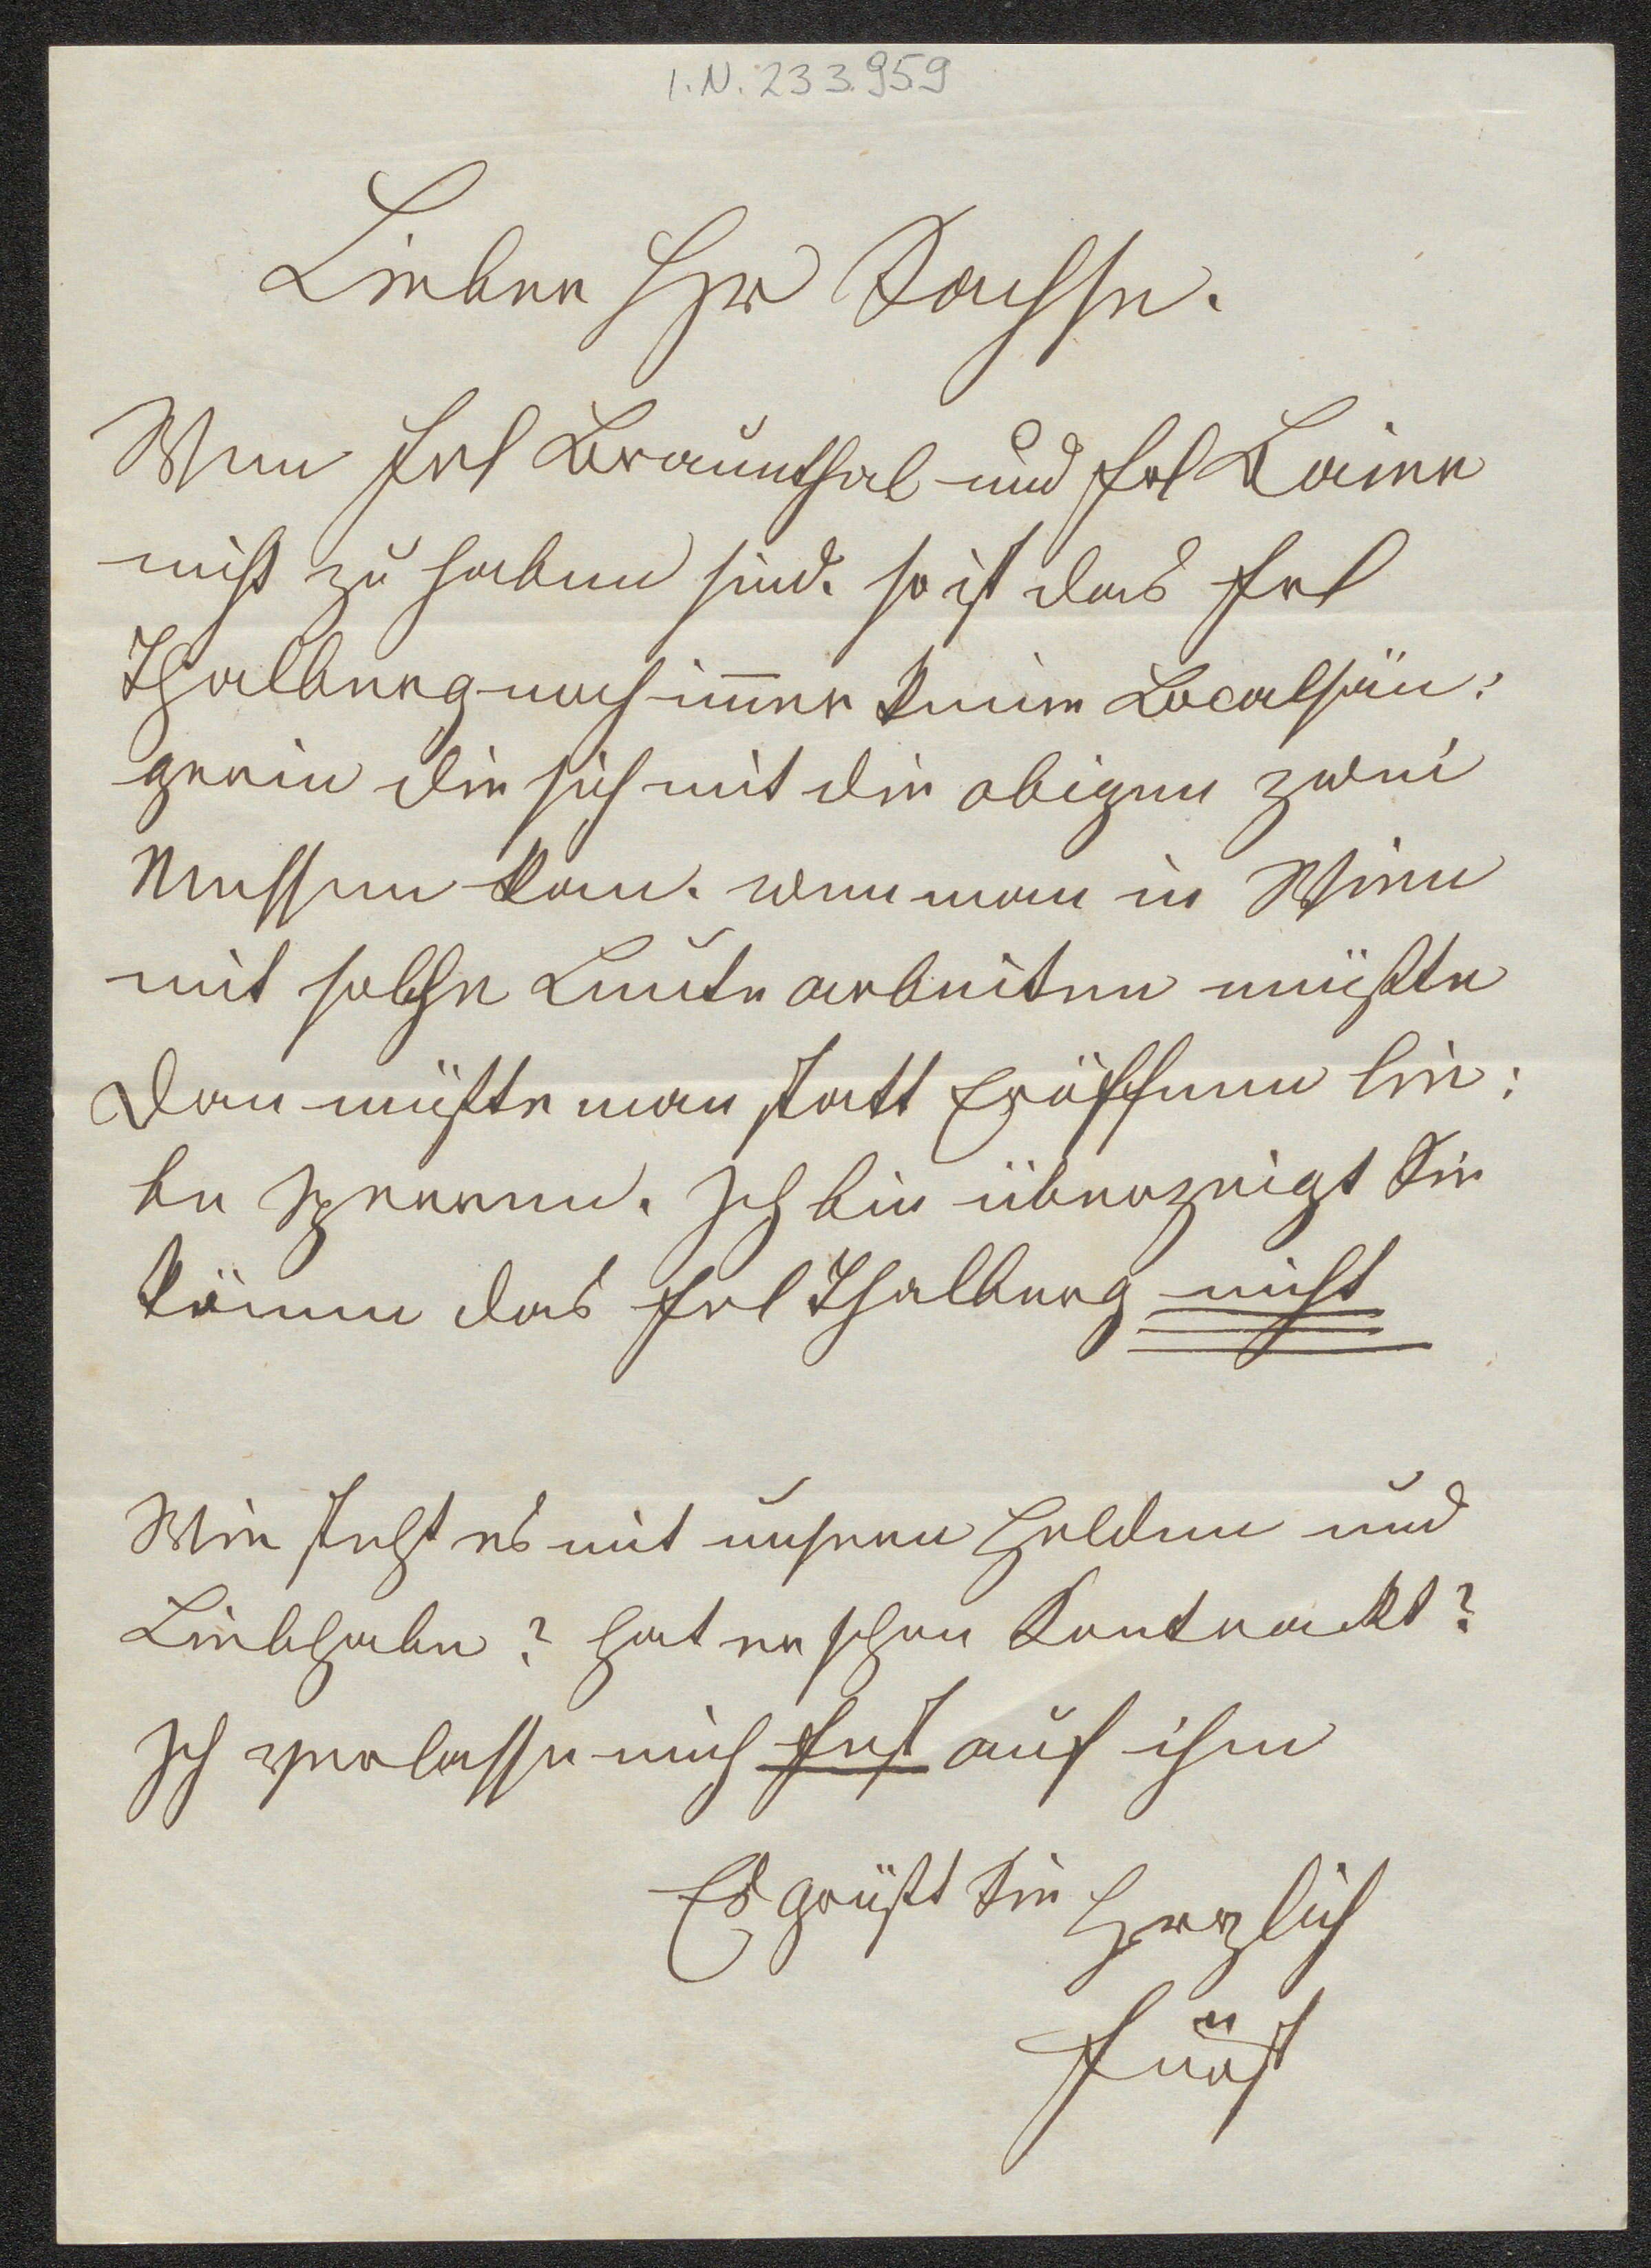 I.N. 233.959
Lieber Hr Sachse.
Wen Frl Braunthal und Frl
nicht zu haben sind. so ist das Frl
Thalberg noch im̅er keine Localsän:
gerin die sich mit die obigen zwei
Messen kan. wen man in Wien
mit solche Leute arbeiten müßte
dan müßte man statt Eröffnen lie:
be speeren. Ich bin überzeigt Sie
könen das Frl Thalberg nicht
Wie steht es mit unseren Helden und
Liebhaber? hat er schon Kontrackt?
Ich verlasse mich fest auf ihm
Es grüßt Sie Herzlich
Fürst